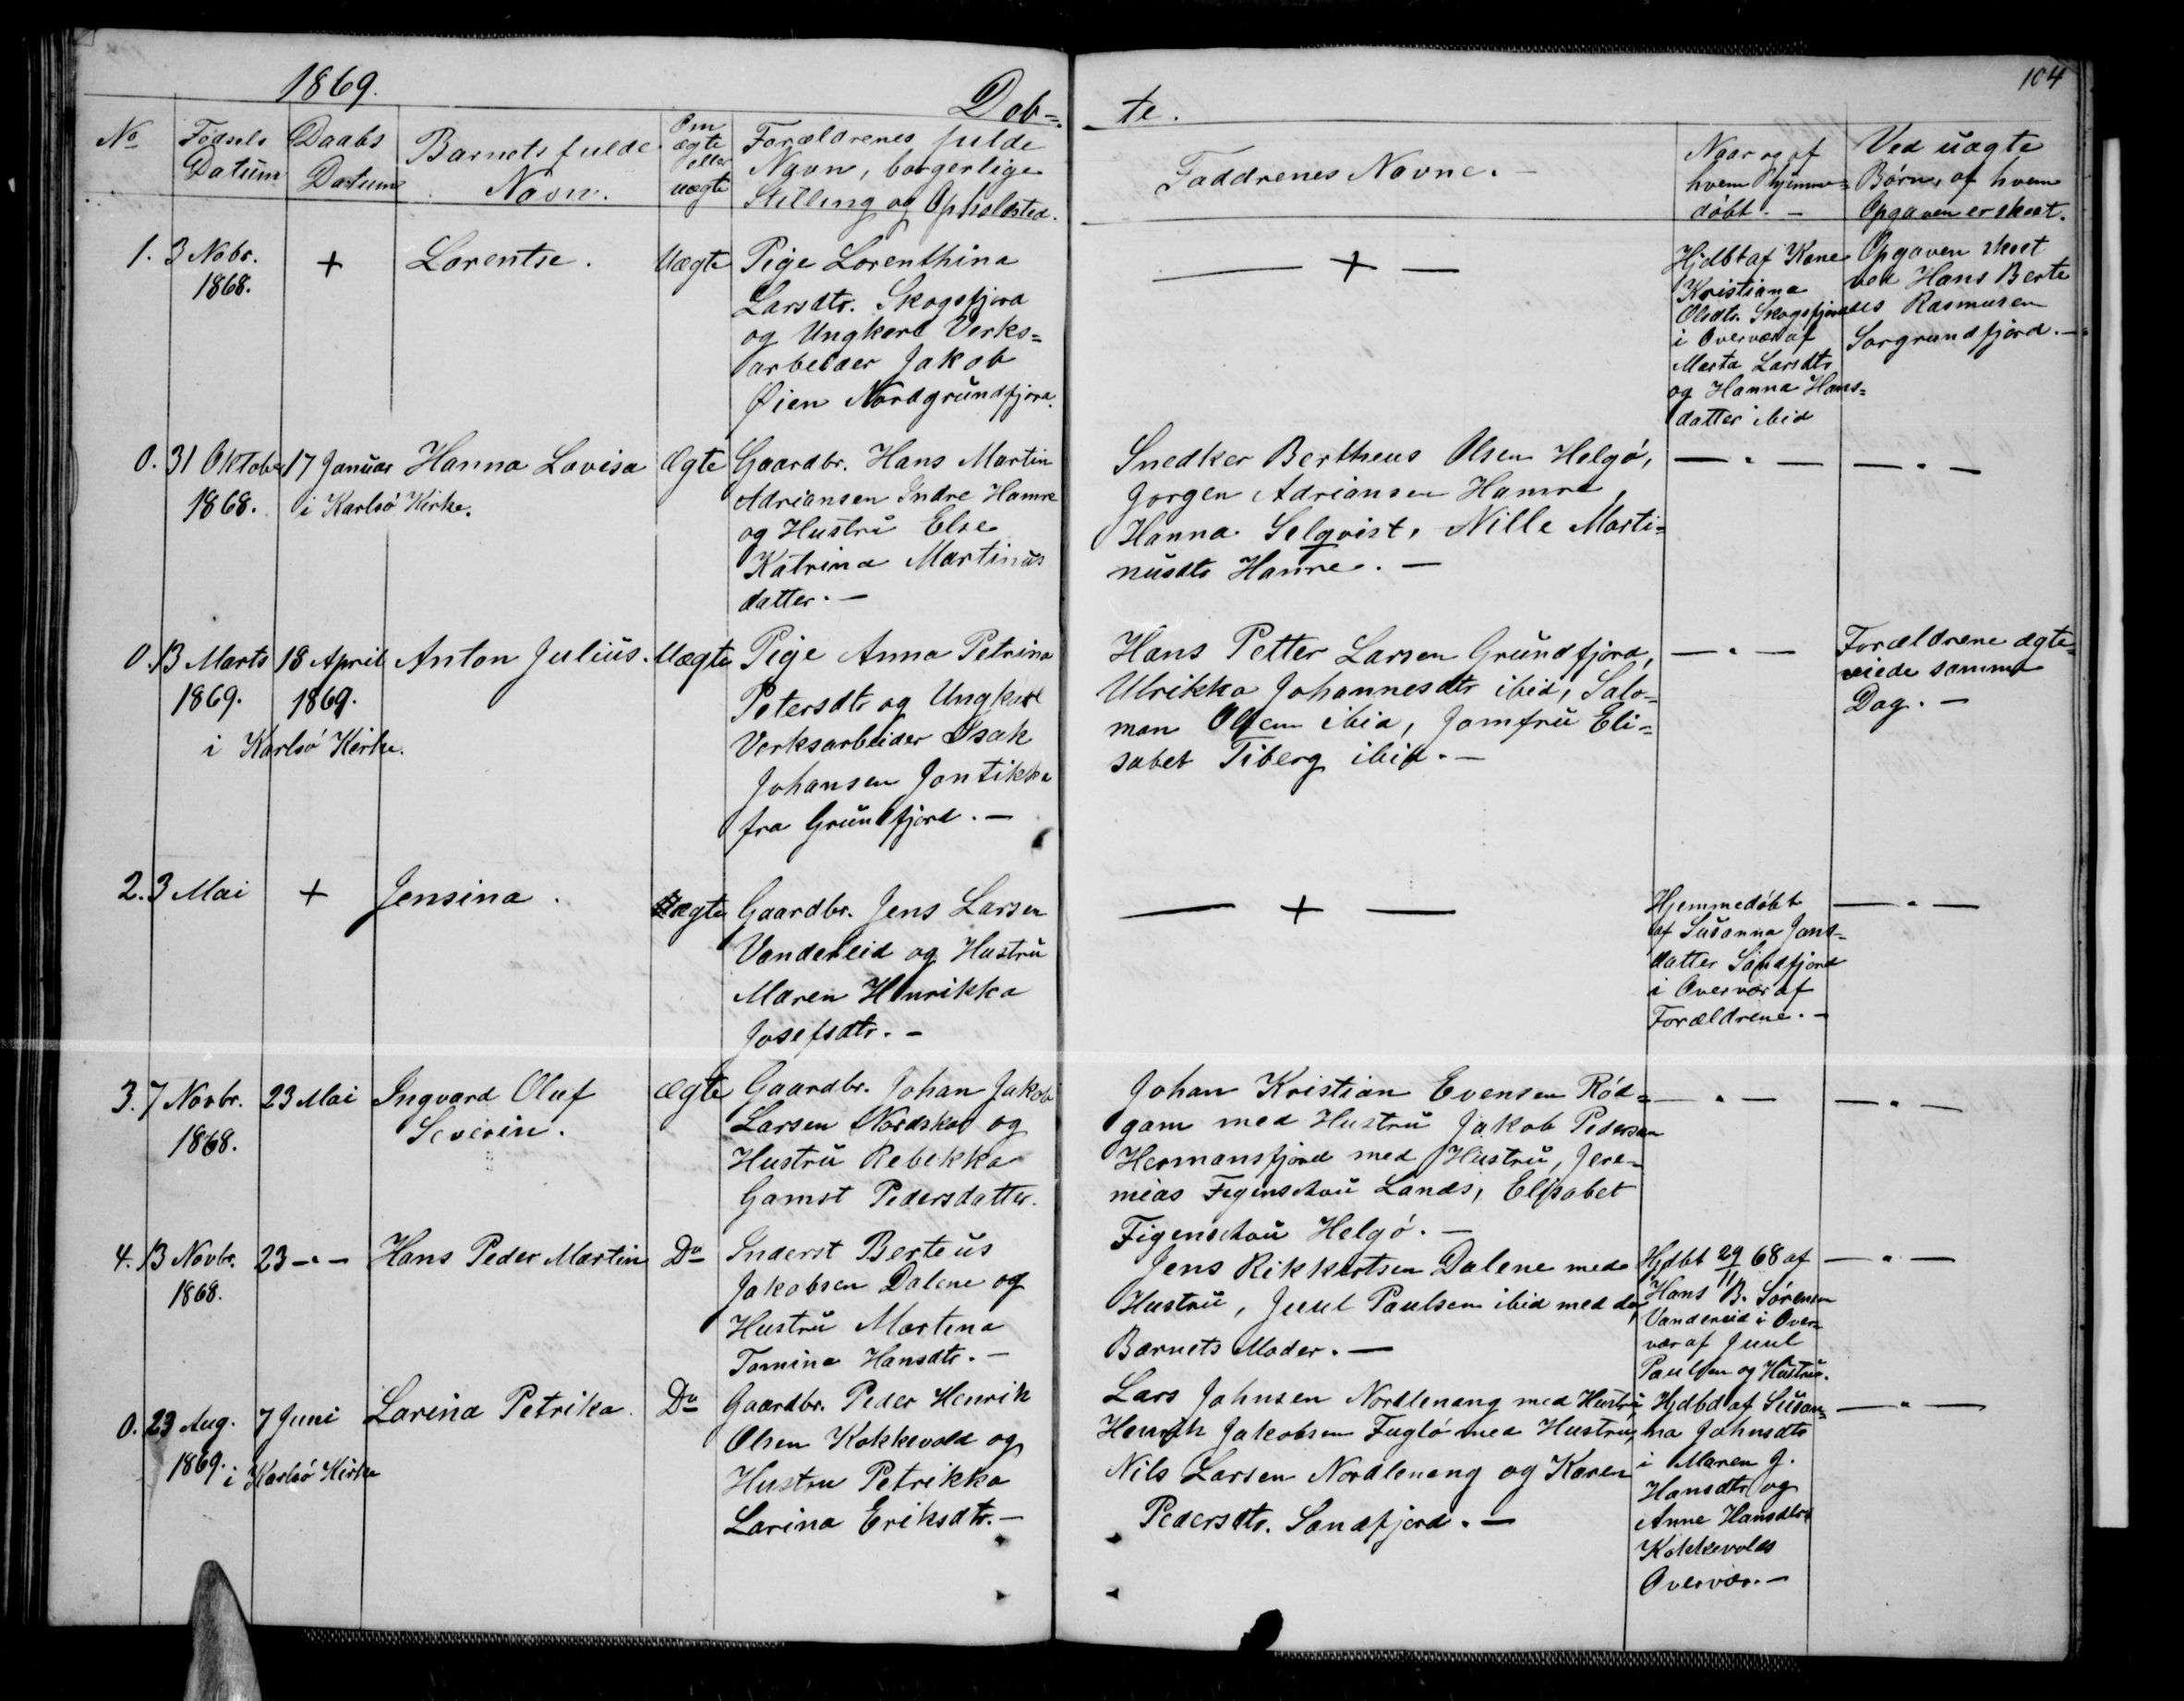 1869.
Døb=
te.
104
No
Fødsels
Datum
Daabs
Datum
Barnets fulde
Navn.
Om
ægte
eller
uægte
Forældrenes fulde
Navn, borgerlige
Stilling og Opholdsted.
Faddrenes Navne. -
Naar og af
hvem hjemme=
døbt. -
Ved uægte
Børn, af hvem
Opgaven er skeet.
1.
3 Nobr.
1868.
+
Lorentse.
Uægte
Pige Lorenthina
Larsdtr. Skogsfjord
og Ungkarl Verks=
arbeider Jakob
Øien Nordgrundfjord.
— + —
Hjdbt af Kone
Kristiana
Olsdtr. Skogsfjord
i Overvær af
Marta Larsdtr
og Hanna Hans=
datter ibid
Opgaven skeet
ved Hans Berte
us Rasmusen
Sørgrundfjord. -
0.
31 Oktober
1868.
17 Januar
i Karlsø Kirke.
Hanna Lovisa
Ægte
Gaardbr. Hans Martin
Adriansen Indre Hamre
og Hustru Else
Katrina Martinus
datter. -
Snedker Bertheus Olsen Helgø,
Jørgen Adriansen Hamre,
Hanna Selqvist, Nille Marti=
nusdtr Hamre. -
— " —
— " —
0.
13 Marts
1869.
18 April
1869.
i Karlsø Kirke.
Anton Julius.
Uægte
Pige Anna Petrina
Petersdtr og Ungkarl
Verksarbeider Isak
Johansen Jontikka
fra Grundfjord. -
Hans Petter Larsen Grundfjord,
Ulrikka Johannesdtr ibid, Salo=
mon Olsen ibid, Jomfru Eli=
sabet Tiberg ibid. -
— " —
Forældrene ægte=
viede samme
Dag. -
2.
3 Mai
+
Jensina.
Ægte
Gaardbr. Jens Larsen
Vandereid og Hustru
Maren Henrikka
Josefsdtr. -
— + —
Hjemmedøbt
af Susanna Jens=
datter Sandfjord
i Overvær af
Forældrene. -
— " —
3.
7 Novbr.
1868.
23 Mai
Ingvard Oluf
Severin.
ægte
Gaardbr. Johan Jakob
Larsen Nordskar og
Hustru Rebekka
Gamst Pedersdatter.
Johan Kristian Evensen Rød=
gam med Hustru Jakob Pedersen
Hermansfjord med Hustru, Jere=
mias Figenschou Lands, Elisabet
Figenschou Helgø. -
— " —
— " —
4.
13 Novbr.
1868.
23 — " —
Hans Peder Martin
Do
Inderst Berteus
Jakobsen Dalene og
Hustru Martina
Tomine Hansdtr. -
Jens Rikkertsen Dalene med
Hustru, Juul Paulsen ibid med do,
Barnets Moder. -
Hjdbt 29/11 68 af
Hans B. Sørensen
Vandereid i Over=
vær af Juul
Paulsen og Hustru.
— " —
0.
23 Aug.
1869.
7 Juni
i Karlsø Kirke
Larina Petrika.
Do
Gaardbr. Peder Henrik
Olsen Kokkevold og
Hustru Petrikka
Larina Eriksdtr. -
Lars Johnsen Nordlenang med Hustru,
Henrik Jakobsen Fuglø med Hustru,
Nils Larsen Nordlenang og Karen
Pedersdtr. Sandfjord. -
Hjdbd af Susan=
na Johnsdtr
i Maren J.
Hansdtr og
Anne Hansdtrs
Kokkevolds
Overvær. -
— " —